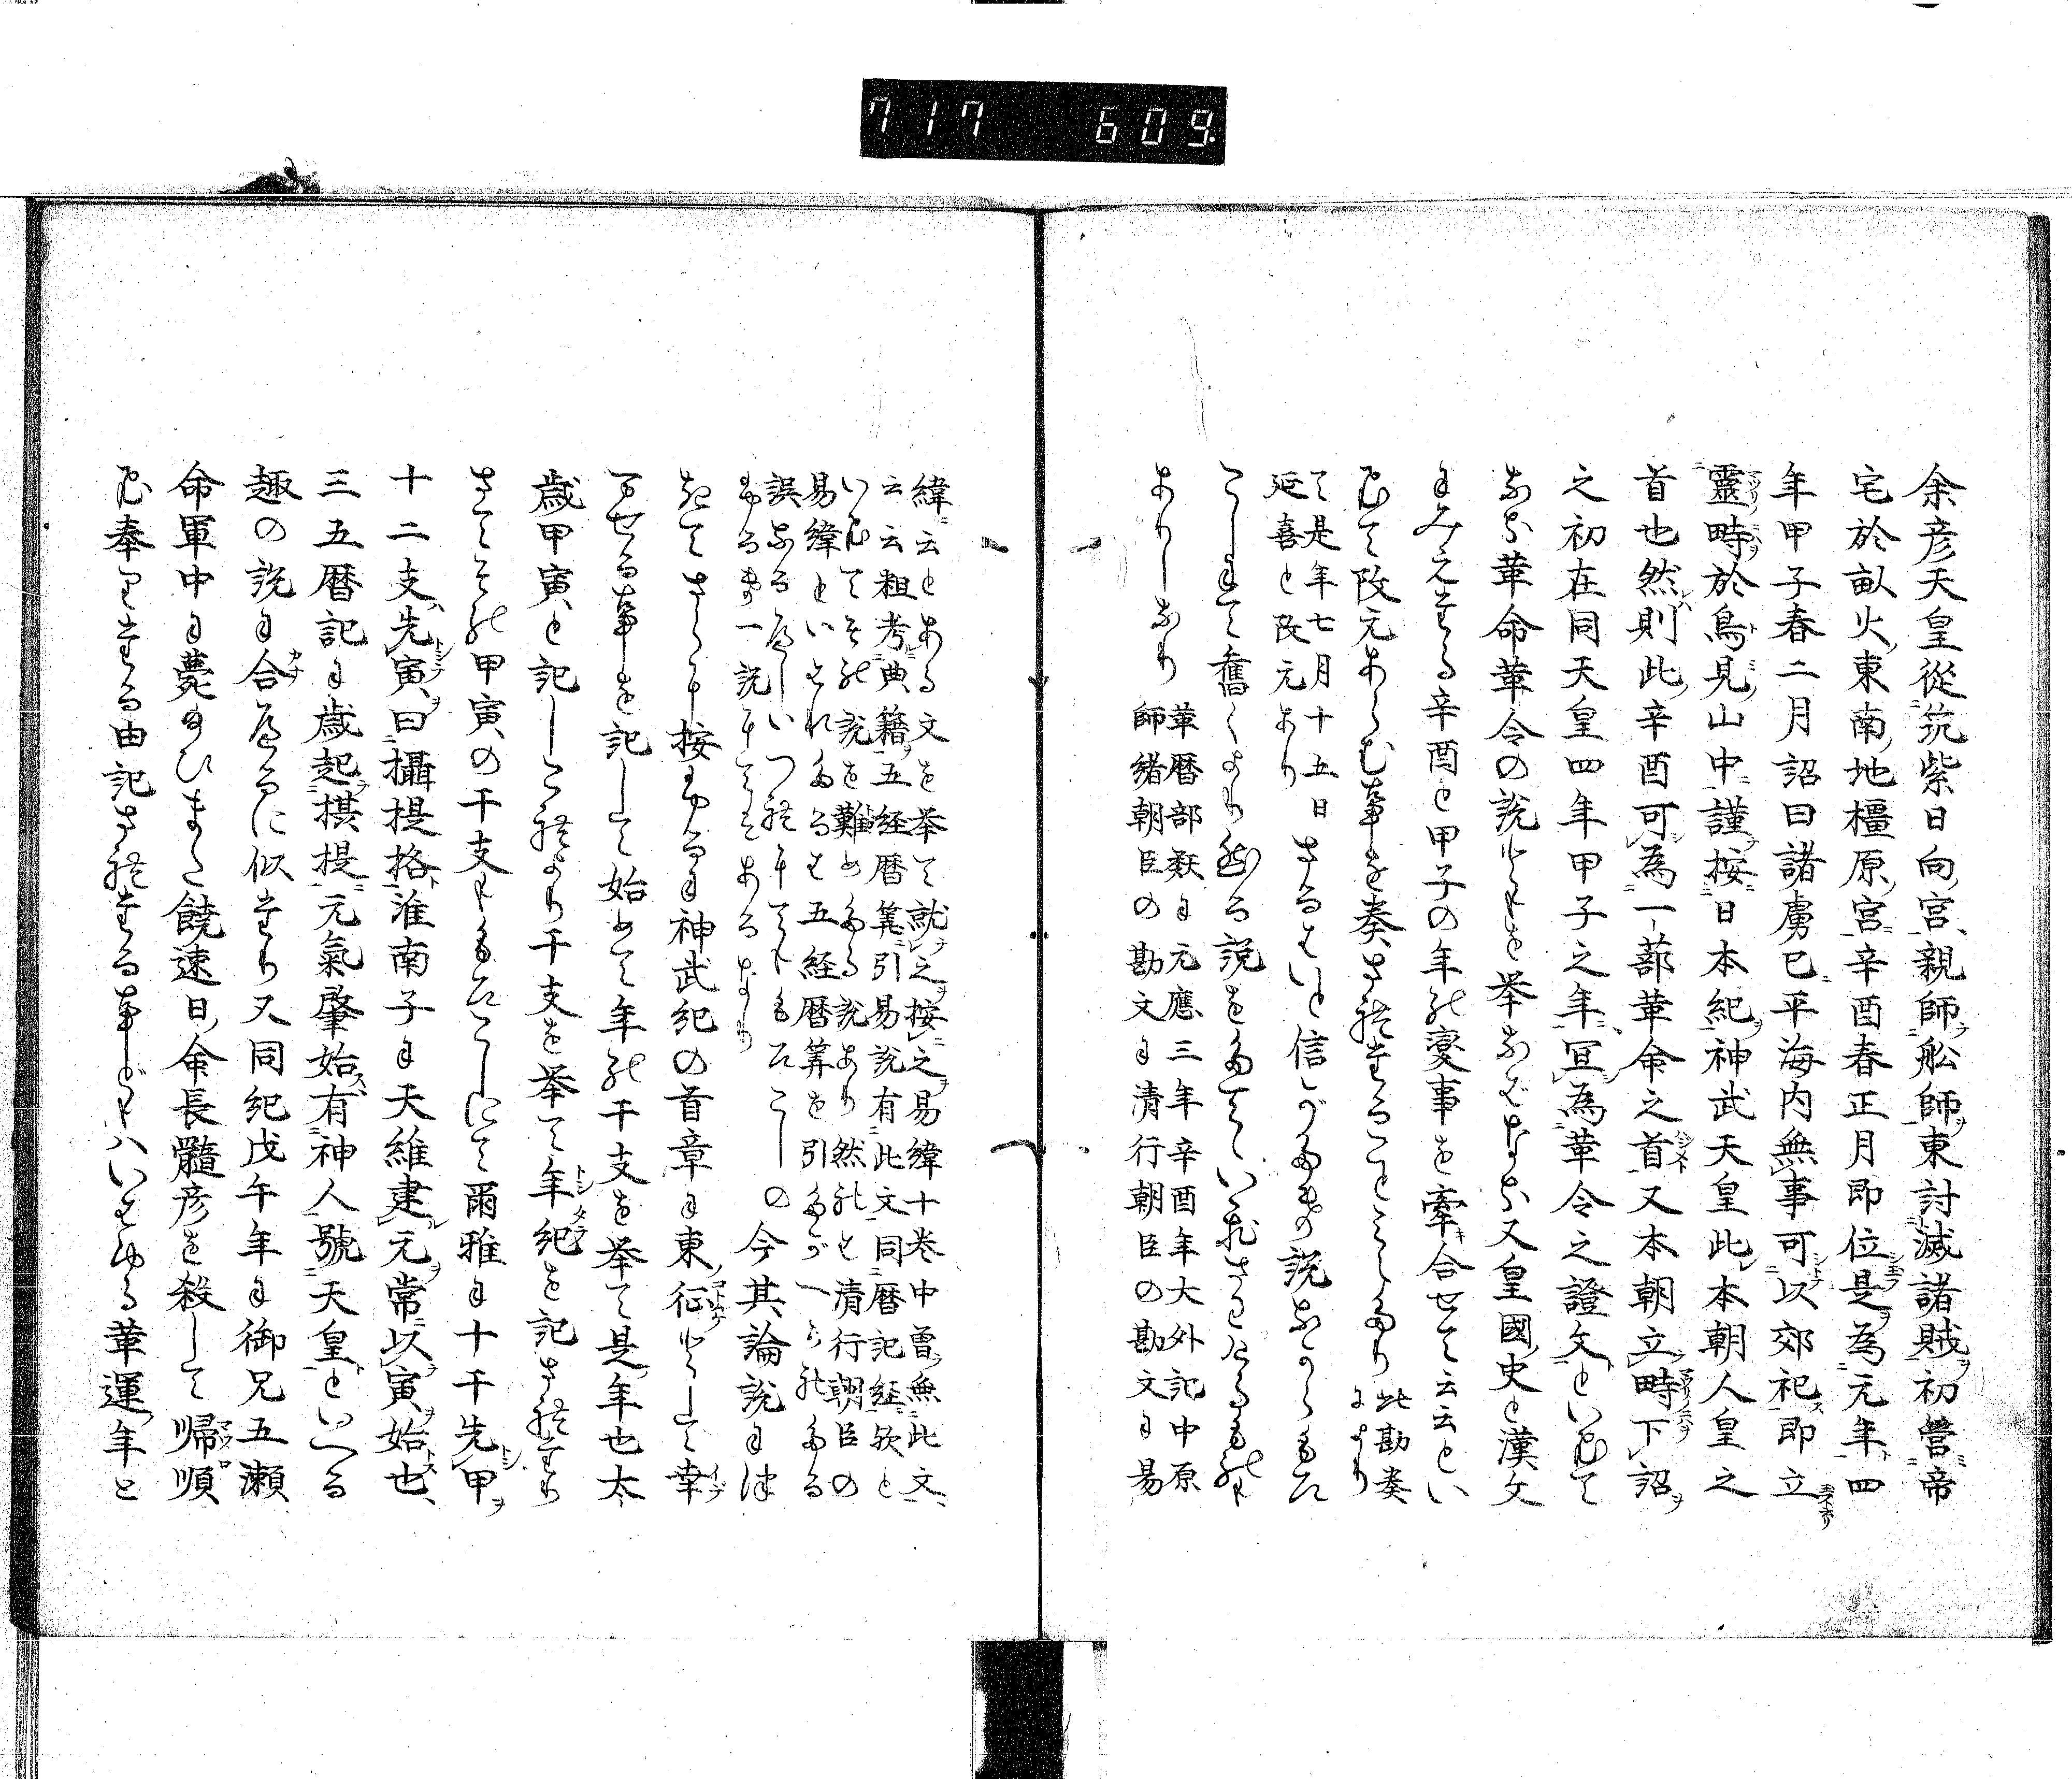 717 609
余彦天皇從筑紫日向宮親師舩師東討滅諸賊初營帝
宅於畝火東南地橿原宮辛酉春正月即位是為元年四
年甲子春二月詔曰諸虜已平海内無事可以郊祀即立
靈畤於鳥見山中謹按日本紀神武天皇此本朝人皇之
首也然則此辛酉可為一蔀革命之首又本朝立畤下詔
之初在同天皇四年甲子之年宜為革令之證文といひて
なほ革命革令の説どもを挙なぞなほ又皇國史と漢文
にみえたる辛酉と甲子の年の変事を牽合せて云云とい
ひて改元あらむ事を奏されたることとなり此勘奏
によりて是年七月十五日
延喜と改元あり さるはいと信がたき説なからもた
こしまて奮くより然る説をたていはれさわけるもの
ありしなり 革暦部類に元應三年辛酉年大外記中原
師緒朝臣の勘文に清行朝臣の勘文に易
緯云とある文を挙て就之按之易緯十巻中曽無此文
云云粗考典籍五経暦筭引易説有此文同暦記経欤と
いひてその説を難めたる説あり然れど清行朝臣の
易緯といはれたるは五経暦筭を引たが一られたる
誤なるべしいづれにてもたこしの
一説にてあるなり 今其論説に
起てさらに按ふるに神武紀の首章に東征どらして幸
ませる事を記して始めて年の干支を挙て是年也太
歳甲寅と記しこれより干支を挙て年紀を記されたり
さてその甲寅の干支にもたこしにて爾雅に十干先甲
十二支先寅曰攝提格淮南子に天維建元常以寅始也
三五暦記に歳起摂提元氣肇始有神人號天皇といへる
趣の説に合へるに似たり又同紀戊午年に御兄五瀬
命軍中に薨まひまた饒速日命長髓彦を殺して帰順
ひ奉りたる由記されたる事どもハいはゆる革運年と